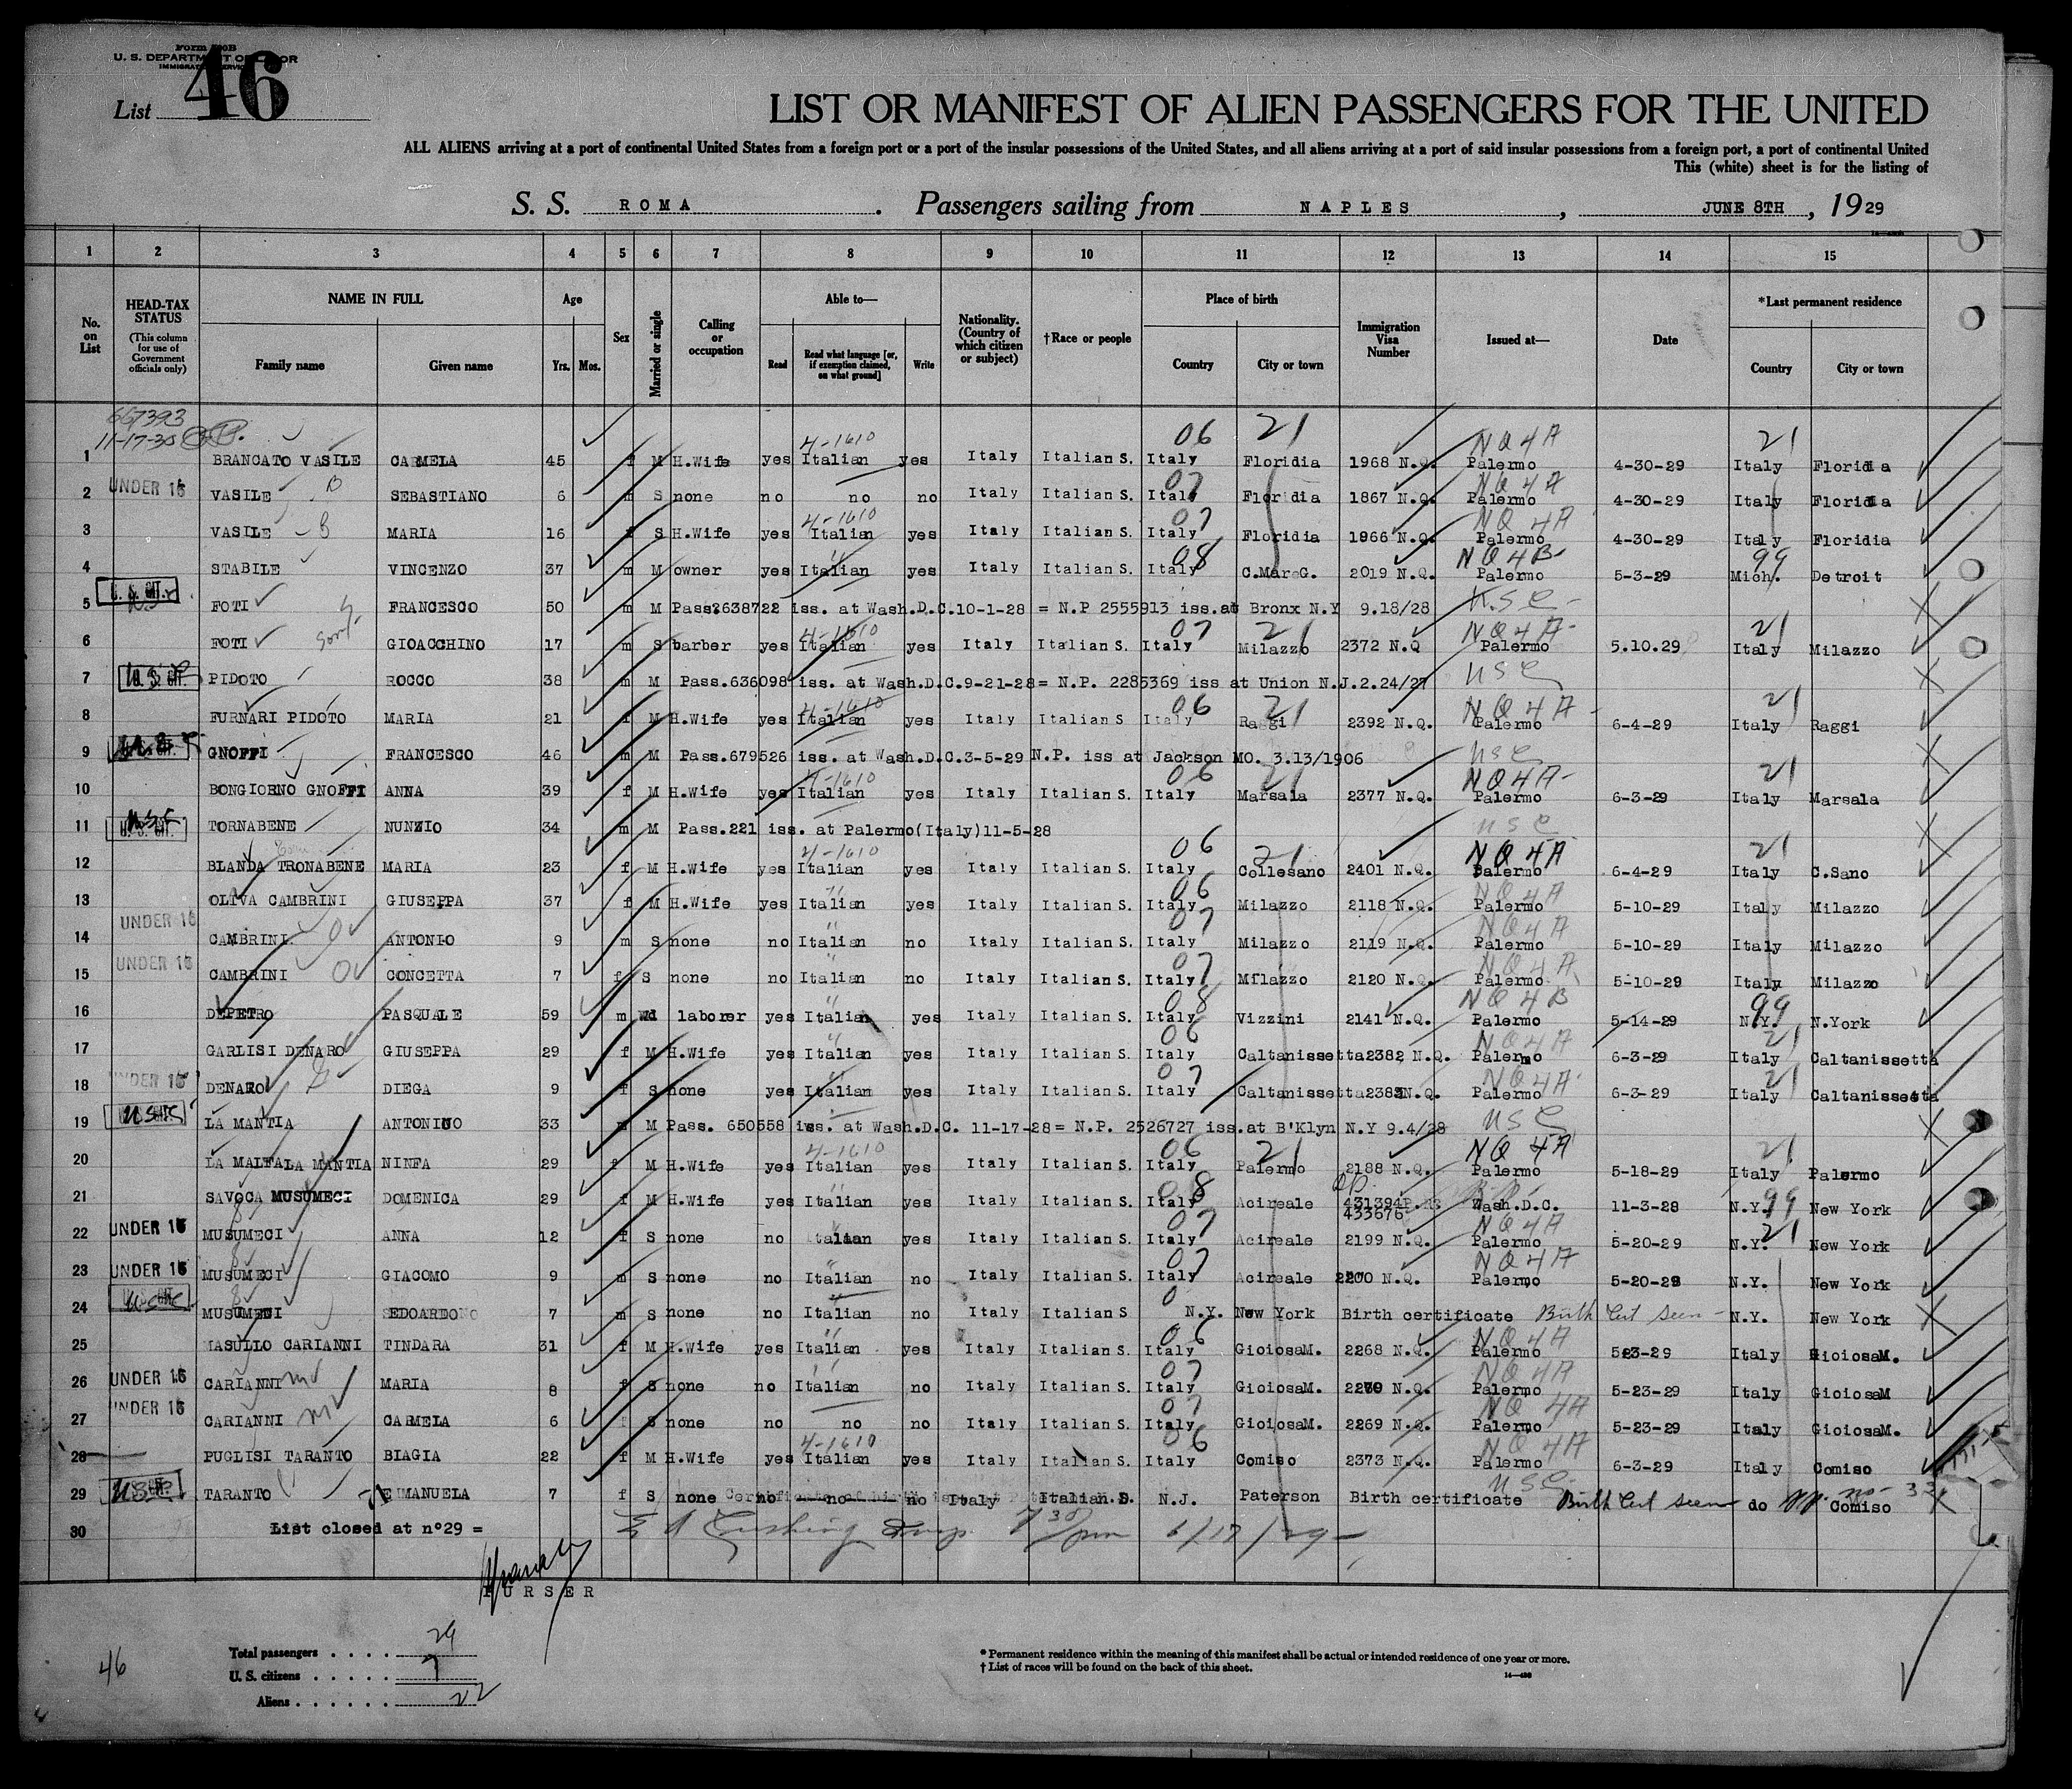 Form 500B
U. S. DEPARTMENT OF LABOR
IMMIGRATION SERVICE
List 46
LIST OR MANIFEST OF ALIEN PASSENGERS FOR THE UNITED
ALL ALIENS arriving at a port of continental United States from a foreign port or a port of the insular possessions of the United States, and all aliens arriving at a port of said insular possessions from a foreign port, a port of continental United
This (white) sheet is for the listing of
S. S. ROMA. Passengers sailing from NAPLES, JUNE 8TH, 1929
1 2 3 4 5 6 7 8 9 10 11 12 13 14 15
No. on List
HEAD-TAX STATUS (This column for use of Government officials only)
NAME IN FULL Family name Given name
Age Yrs. Mos.
Sex
Married or single
Calling or occupation
Able to— Read Read what language [or, if exemption claimed, on what ground] Write
Nationality. (Country of which citizen or subject)
†Race or people
Place of birth Country City or town
Immigration Visa Number
Issued at—
Date
*Last permanent residence Country City or town
667393
11-17-30
4-1610 06 21 NQ4A 21
1 BRANCATO VASILE CARMELA 45 f M H.Wife yes Italian yes Italy Italian S. Italy Floridia 1968 N.Q. Palermo 4-30-29 Italy Floridia
UNDER 16 B 07 NQ4A
2 VASILE SEBASTIANO 6 m S none no no no Italy Italian S. Italy Floridia 1867 N.Q. Palermo 4-30-29 Italy Floridia
4-1610 07 NQ4A
3 VASILE B MARIA 16 f S H.Wife yes Italian yes Italy Italian S. Italy Floridia 1966 N.Q. Palermo 4-30-29 Italy Floridia
" 08 NQ4B 99
4 STABILE VINCENZO 37 m M owner yes Italian yes Italy Italian S. Italy C.Mar.G. 2019 N.Q. Palermo 5-3-29 Mich. Detroit
U. S. CIT.
5 FOTI FRANCESCO 50 m M Pass.2638722 iss. at Wash.D.C.10-1-28 = N.P 2555913 iss.at Bronx N.Y 9.18/28 USC
son 4-1610 07 21 NQ4A 21
6 FOTI GIOACCHINO 17 m S barber yes Italian yes Italy Italian S. Italy Milazzo 2372 N.Q Palermo 5.10.29 Italy Milazzo
U. S. CIT.
7 PIDOTO ROCCO 38 m M Pass.636098 iss. at Wash.D.C.9-21-28= N.P. 2285369 iss at Union N.J.2.24/27 USC
4-1610 06 21 NQ4A 21
8 FURNARI PIDOTO MARIA 21 f M H.Wife yes Italian yes Italy Italian S Italy Raggi 2392 N.Q. Palermo 6-4-29 Italy Raggi
9 GNOFFI FRANCESCO 46 m M Pass.679526 iss. at Wash.D.C.3-5-29 N.P. iss at Jackson MO. 3.13/1906 USC
4-1610 06 21 NQ4A 21
10 BONGIORNO GNOFFI ANNA 39 f M H.Wife yes Italian yes Italy Italian S. Italy Marsala 2377 N.Q. Palermo 6-3-29 Italy Marsala
U. S. CIT.
11 TORNABENE NUNZIO 34 m M Pass.221 iss. at Palermo(Italy)11-5-28 USC
4-1610 06 21 NQ4A 21
12 BLANDA TRONABENE MARIA 23 f M H.Wife yes Italian yes Italy Italian S. Italy Collesano 2401 N.Q. Palermo 6-4-29 Italy C.Sano
" 06 NQ4A
13 OLIVA CAMBRINI GIUSEPPA 37 f M H.Wife yes Italian yes Italy Italian S. Italy Milazzo 2118 N.Q. Palermo 5-10-29 Italy Milazzo
UNDER 16 " 07 NQ4A
14 CAMBRINI O ANTONIO 9 m S none no Italian no Italy Italian S. Italy Milazzo 2119 N.Q. Palermo 5-10-29 Italy Milazzo
UNDER 16 " 07 NQ4A
15 CAMBRINI O CONCETTA 7 f S none no Italian no Italy Italian S. Italy Milazzo 2120 N.Q. Palermo 5-10-29 Italy Milazzo
" 08 NQ4B 99
16 DEPETRO PASQUALE 59 m Wd laborer yes Italian yes Italy Italian S. Italy Vizzini 2141 N.Q. Palermo 5-14-29 N.Y. N.York
" 06 NQ4A 21
17 GARLISI DENARO GIUSEPPA 29 f M H.Wife yes Italian yes Italy Italian S. Italy Caltanissetta 2382 N.Q. Palermo 6-3-29 Italy Caltanissetta
UNDER 16 " 07 NQ4A 21
18 DENARO DIEGA 9 f S none yes Italian yes Italy Italian S. Italy Caltanissetta 2383 N.Q. Palermo 6-3-29 Italy Caltanissetta
19 LA MANTIA ANTONINO 33 m M Pass. 650558 iss. at Wash.D.C. 11-17-28= N.P. 2526727 iss.at B'Klyn N.Y 9.4/28 USC
4-1610 06 21 NQ4A 21
20 LA MALFA LA MANTIA NINFA 29 f M H.Wife yes Italian yes Italy Italian S. Italy Palermo 2188 N.Q. Palermo 5-18-29 Italy Palermo
" 08 99
21 SAVOCA MUSUMECI DOMENICA 29 f M H.Wife yes Italian yes Italy Italian S. Italy Acireale 431394 Wash.D.C. 11-3-28 N.Y. New York
433676
UNDER 16 07 NQ4A 21
22 MUSUMECI ANNA 12 f S none no Italian yes Italy Italian S. Italy Acireale 2199 N.Q. Palermo 5-20-29 N.Y. New York
UNDER 16 07 NQ4A
23 MUSUMECI GIACOMO 9 m S none no Italian no Italy Italian S. Italy Acireale 2200 N.Q. Palermo 5-20-29 N.Y. New York
24 MUSUMECI EDOARDO 7 m S none no Italian no Italy Italian S N.Y. New York Birth certificate Birth Cert seen N.Y. New York
" 06 NQ4A
25 MASULLO CARIANNI TINDARA 31 f M H.Wife yes Italian yes Italy Italian S. Italy GioiosaM. 2268 N.Q. Palermo 523-29 Italy GioiosaM.
UNDER 16 " 07 NQ4A
26 CARIANNI MARIA 8 f S none no Italian no Italy Italian S. Italy GioiosaM. 2270 N.Q. Palermo 5-23-29 Italy GioiosaM
UNDER 16 07 NQ4A
27 CARIANNI CARMELA 6 f S none no no no Italy Italian S. Italy GioiosaM. 2269 N.Q. Palermo 5-23-29 Italy GioiosaM.
4-1610 06 NQ4A
28 PUGLISI TARANTO BIAGIA 22 f M H.Wife yes Italian yes Italy Italian S. Italy Comiso 2373 N.Q. Palermo 6-3-29 Italy Comiso
USC
29 TARANTO EMANUELA 7 f S none no no no Italy Italian S. N.J. Paterson Birth certificate Birth Cert seen do Comiso
30 List closed at n°29 = 7 30 pm 6/17/29
PURSER
46
Total passengers . . . . 29
U. S. citizens . . . . . 7
Aliens . . . . . . 22
* Permanent residence within the meaning of this manifest shall be actual or intended residence of one year or more.
† List of races will be found on the back of this sheet.